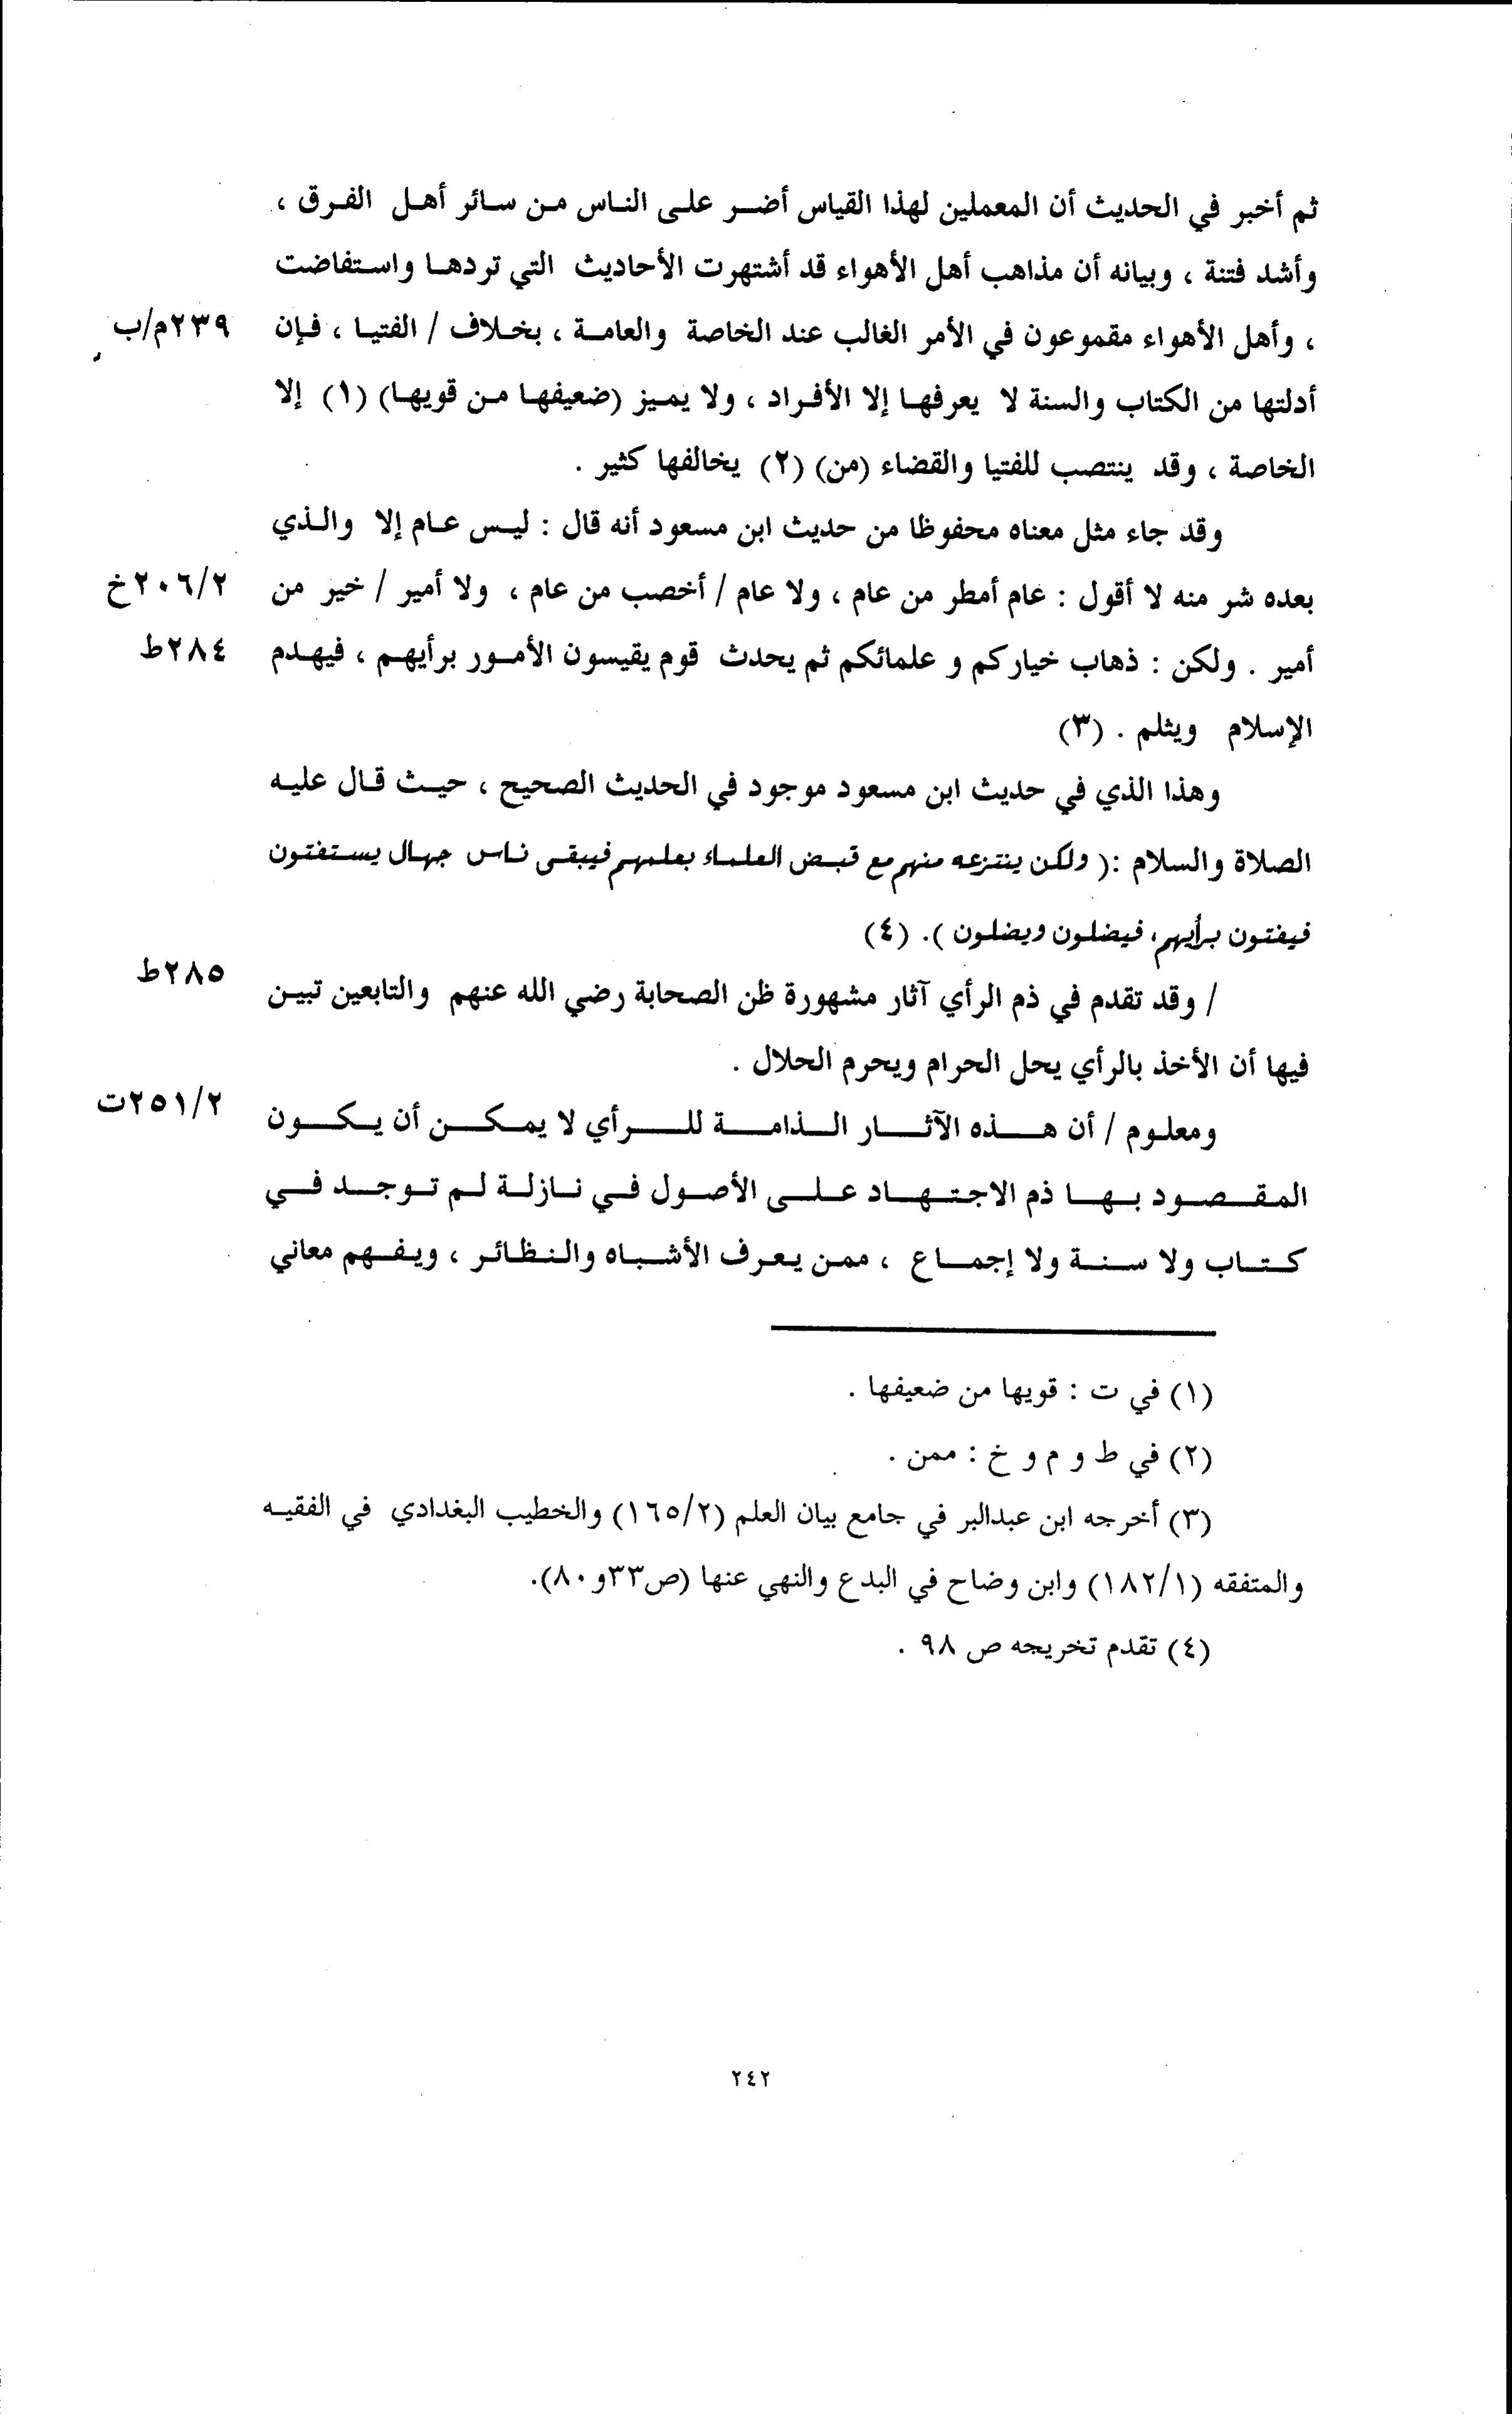 ثم أخبر في الحديث أن المعملين لهذا القياس أضر على الناس من سائر أهل الفرق ،
وأشد فتنة ، وبيانه أن مذاهب أهل الأهواء قد أشتهرت الأحاديث التي تردها واستفاضت
، وأهل الأهواء مقموعون في الأمر الغالب عند الخاصة والعامة ، بخلاف / الفتيا ، فإن ٢٣٩م/ب
أدلتها من الكتاب والسنة لا يعرفها إلا الأفراد ، ولا يميز (ضعيفها من قويها) (١) إلا
الخاصة ، وقد ينتصب للفتيا والقضاء (من) (٢) يخالفها كثير .
وقد جاء مثل معناه محفوظا من حديث ابن مسعود أنه قال : ليس عام إلا والذي
بعده شر منه لا أقول : عام أمطر من عام ، ولا عام / أخصب من عام ، ولا أمير / خير من ٢٠٦/٢خ
أمير . ولكن : ذهاب خياركم و علمائكم ثم يحدث قوم يقيسون الأمور برأيهم ، فيهدم ٢٨٤ط
الإسلام ويثلم . (٣)
وهذا الذي في حديث ابن مسعود موجود في الحديث الصحيح ، حيث قال عليه
الصلاة والسلام :( ولكن ينتزعه منهم مع قبض العلماء بعلمهم فيبقى ناس جهال يستفتون
فيفتون برأيهم، فيضلون ويضلون ). (٤)
/ وقد تقدم في ذم الرأي آثار مشهورة ظن الصحابة رضي الله عنهم والتابعين تبين ٢٨٥ط
فيها أن الأخذ بالرأي يحل الحرام ويحرم الحلال .
ومعلوم / أن هذه الآثار الذامة للرأي لا يمكن أن يكون ٢٥١/٢ت
المقصود بها ذم الاجتهاد على الأصول في نازلة لم توجد في
كتاب ولا سنة ولا إجماع ، ممن يعرف الأشباه والنظائر ، ويفهم معاني
(١) في ت : قويها من ضعيفها .
(٢) في ط و م و خ : ممن .
(٣) أخرجه ابن عبدالبر في جامع بيان العلم (١٦٥/٢) والخطيب البغدادي في الفقيه
والمتفقه (١٨٢/١) وابن وضاح في البدع والنهي عنها (ص٣٣و٨٠).
(٤) تقدم تخريجه ص ٩٨ .
٢٤٢